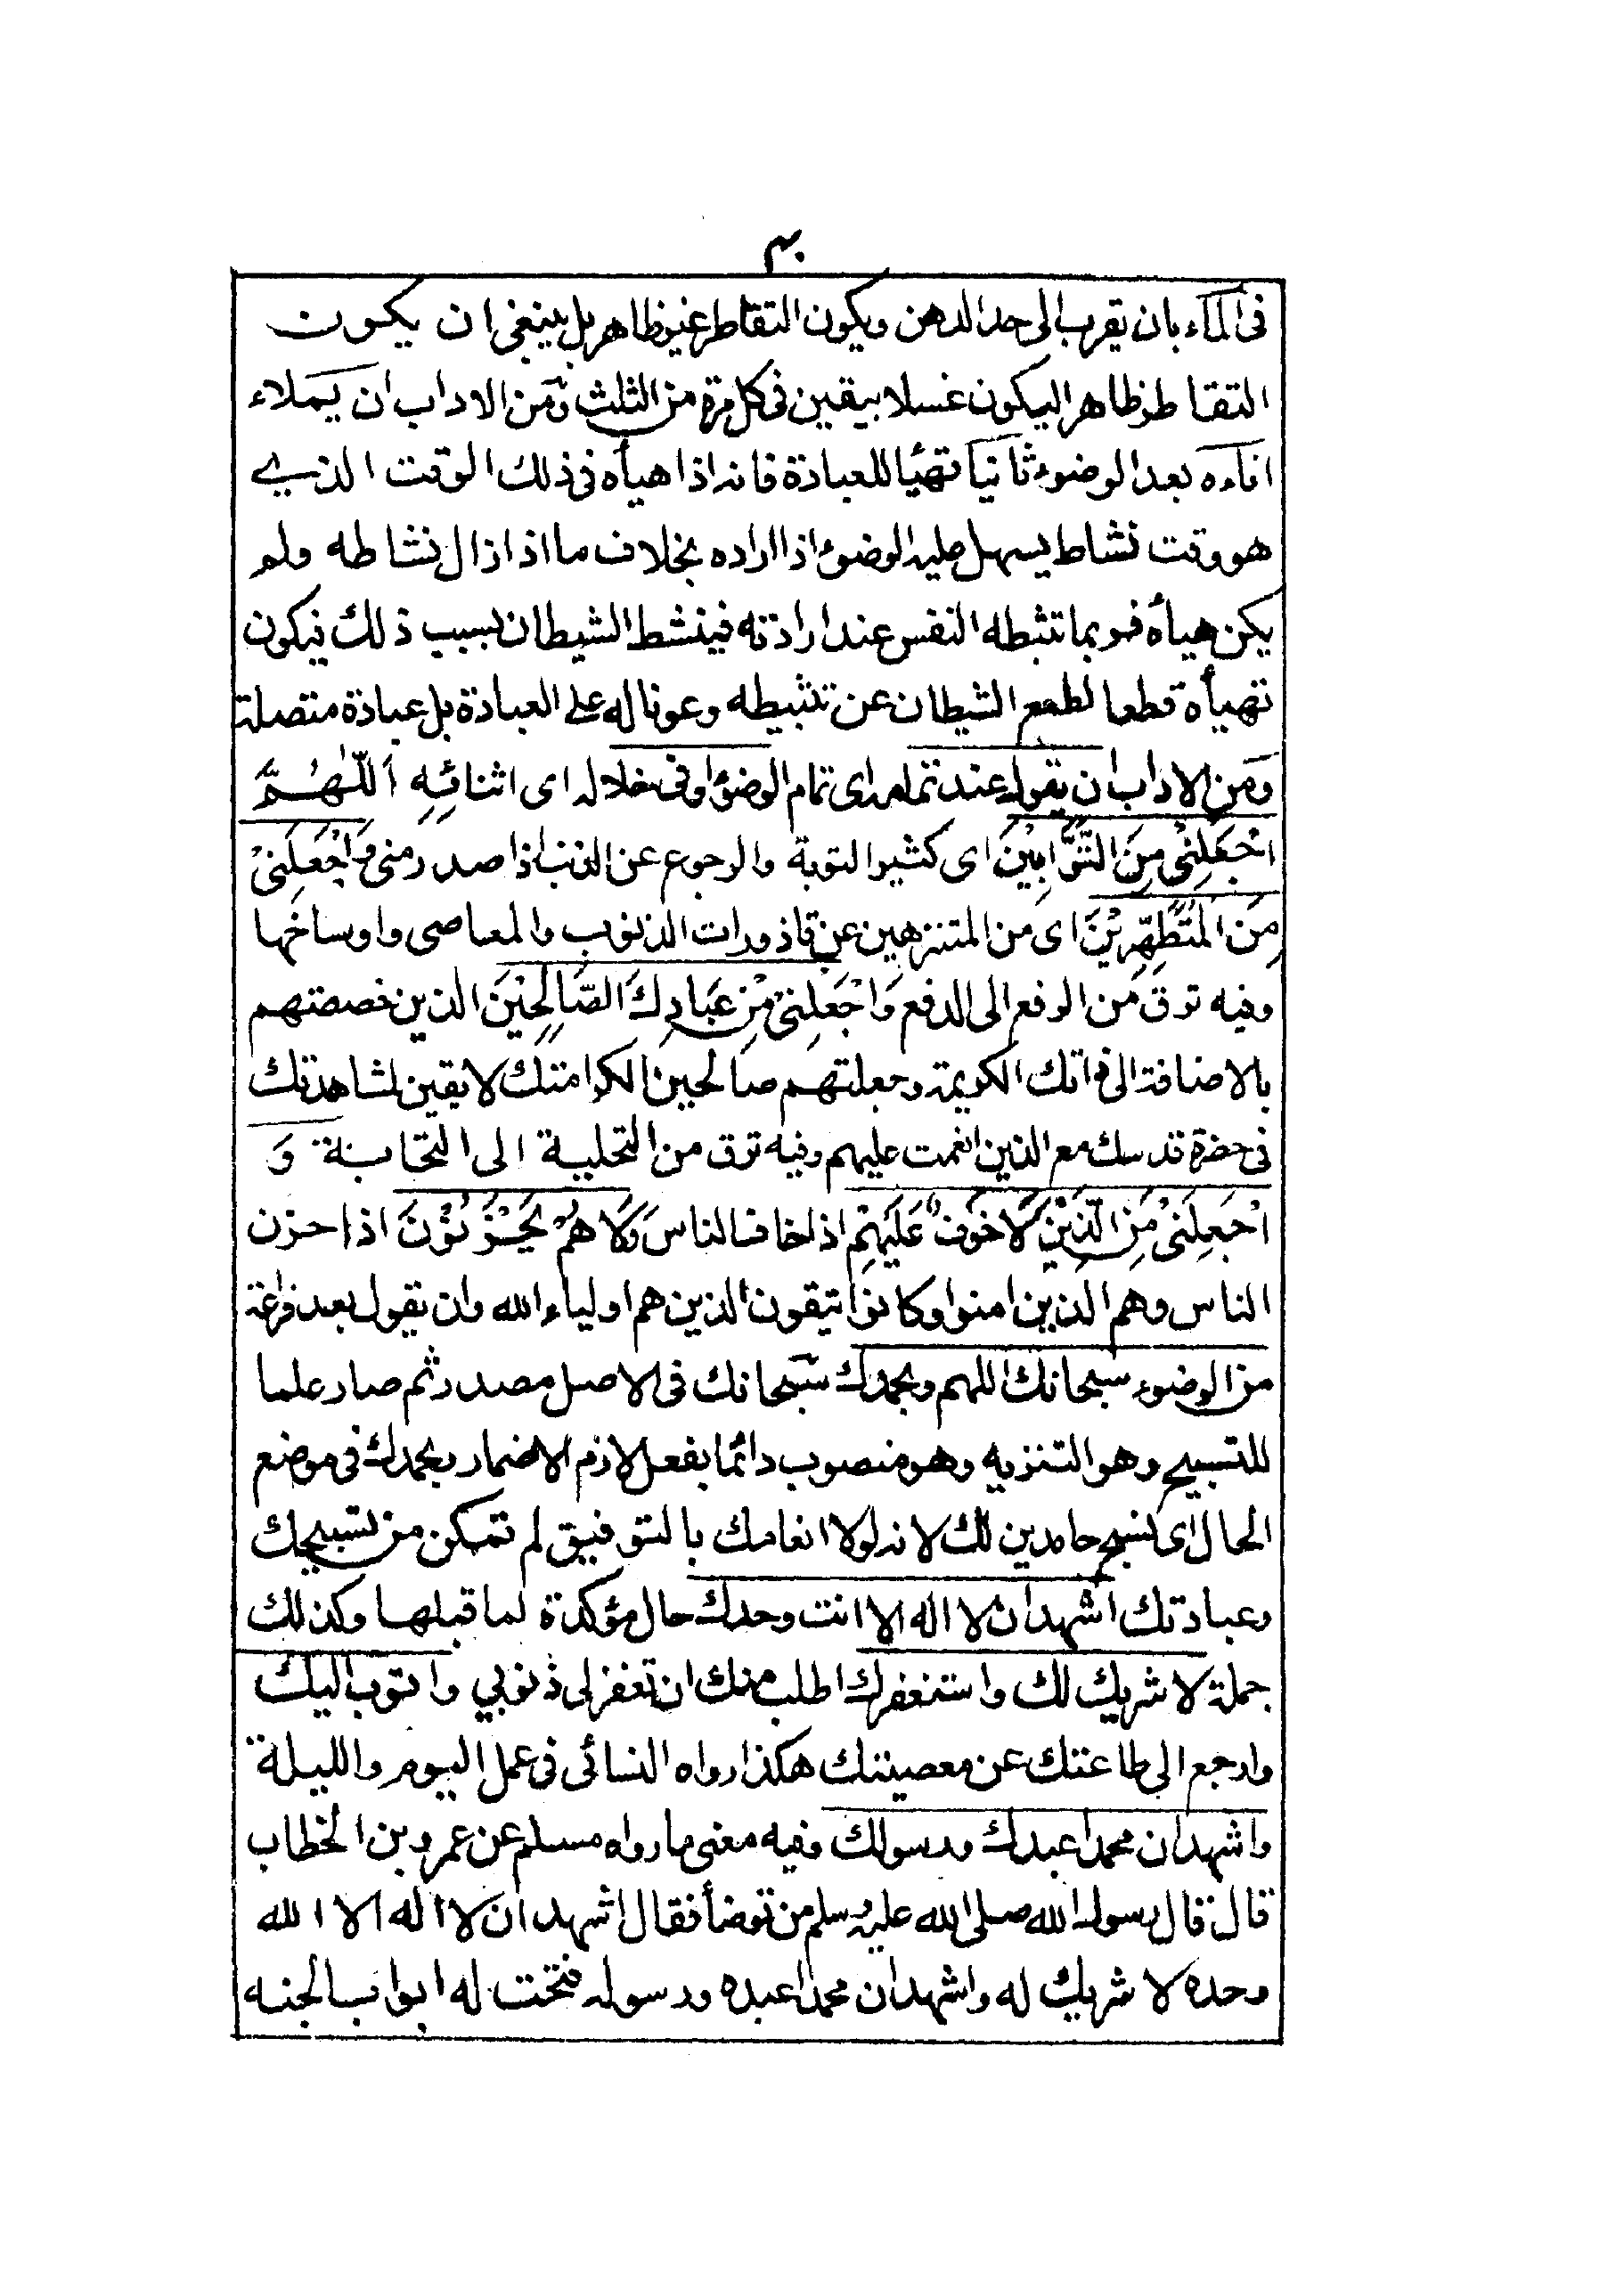 ٣٠
فى الماء بان يقرب الى حد الدهن ويكون التقاطر غير ظاهر بل ينبغى ان يكون
التقاطر ظاهرا ليكون غسلا بيقين فى كل مرة من الثلث ومن الاداب ان يملاء
اناءه بعد الوضوء ثانيا تهيئا للعبادة فانه اذا هيأه فى ذلك الوقت الذي
هو وقت نشاط يسهل عليه الوضوء اذا اراده بخلاف ما اذا زال نشاطه ولم
يكن هيأه فربما تثبطه النفس عند ارادته فينشط الشيطان بسبب ذلك فيكون
تهيأة قطعا لطمع الشيطان عن تثبيطه وعونا له على العبادة بل عبادة متصلة
وَمن الاداب ان يقوله عند تمامه اى تمام الوضؤ او فى خلاله اى اثنائِهِ اَللّٰهُمَّ
اجْعَلْنِىْ مِنَ التَّوَّابِيْنَ اى كثير التوبة والرجوع عن الذنب اذا صدر منى وَاجْعَلْنِىْ
مِنَ الْمُتَطَهِّرِيْنَ اى من المتنزهين عن قاذورات الذنوب والمعاصى واوساخها
وفيه ترق من الرفع الى الدفع وَاجْعَلْنِىْ مِنْ عِبَادِكَ الصَّالِحِيْنَ الذين خصصتهم
بالاضافة الى ذاتك الكريمة وجعلتهم صالحين لكرامتك لايقين لمشاهدتك
فى حضرة قدسك مع الذين انعمت عليهم وفيه ترق من التخلية الى التحلية وَ
اجْعَلْنِىْ مِنَ الَّذِيْنَ لَا خَوْفٌ عَلَيْهِمْ اذا خاف الناس وَلَا هُمْ يَحْزَنُوْنَ اذا حزن
الناس وهم الذين امنوا وكانوا يتقون الذين هم اولياء الله وان يقول بعد فراغه
من الوضوء سبحانك اللهم وبحمدك سبحانك فى الاصل مصدر ثم صار علما
للتسبيح وهو التنزيه وهو منصوب دائما بفعل لازم الاضمار بحمدك فى موضع
الحال اى نسبح حامدين لك لانه لولا انعامك بالتوفيق لم نتمكن من تسبيحك
وعبادتك اشهد ان لا اله الا انت وحدك حال مؤكدة لما قبلها وكذلك
جملة لا شريك لك واستغفرك اطلب منك ان تغفر لى ذنوبي واتوب اليك
وارجع الي طاعتك عن معصيتك هكذا رواه النسائى فى عمل اليوم والليلة
واشهد ان محمدا عبدك ورسولك وفيه معنى ما رواه مسلم عن عمر بن الخطاب
قال قال رسول الله صلى الله عليه وسلم من توضأ فقال اشهد ان لا اله الا الله
وحده لا شريك له واشهد ان محمدا عبده ورسوله فتحت له ابواب الجنه